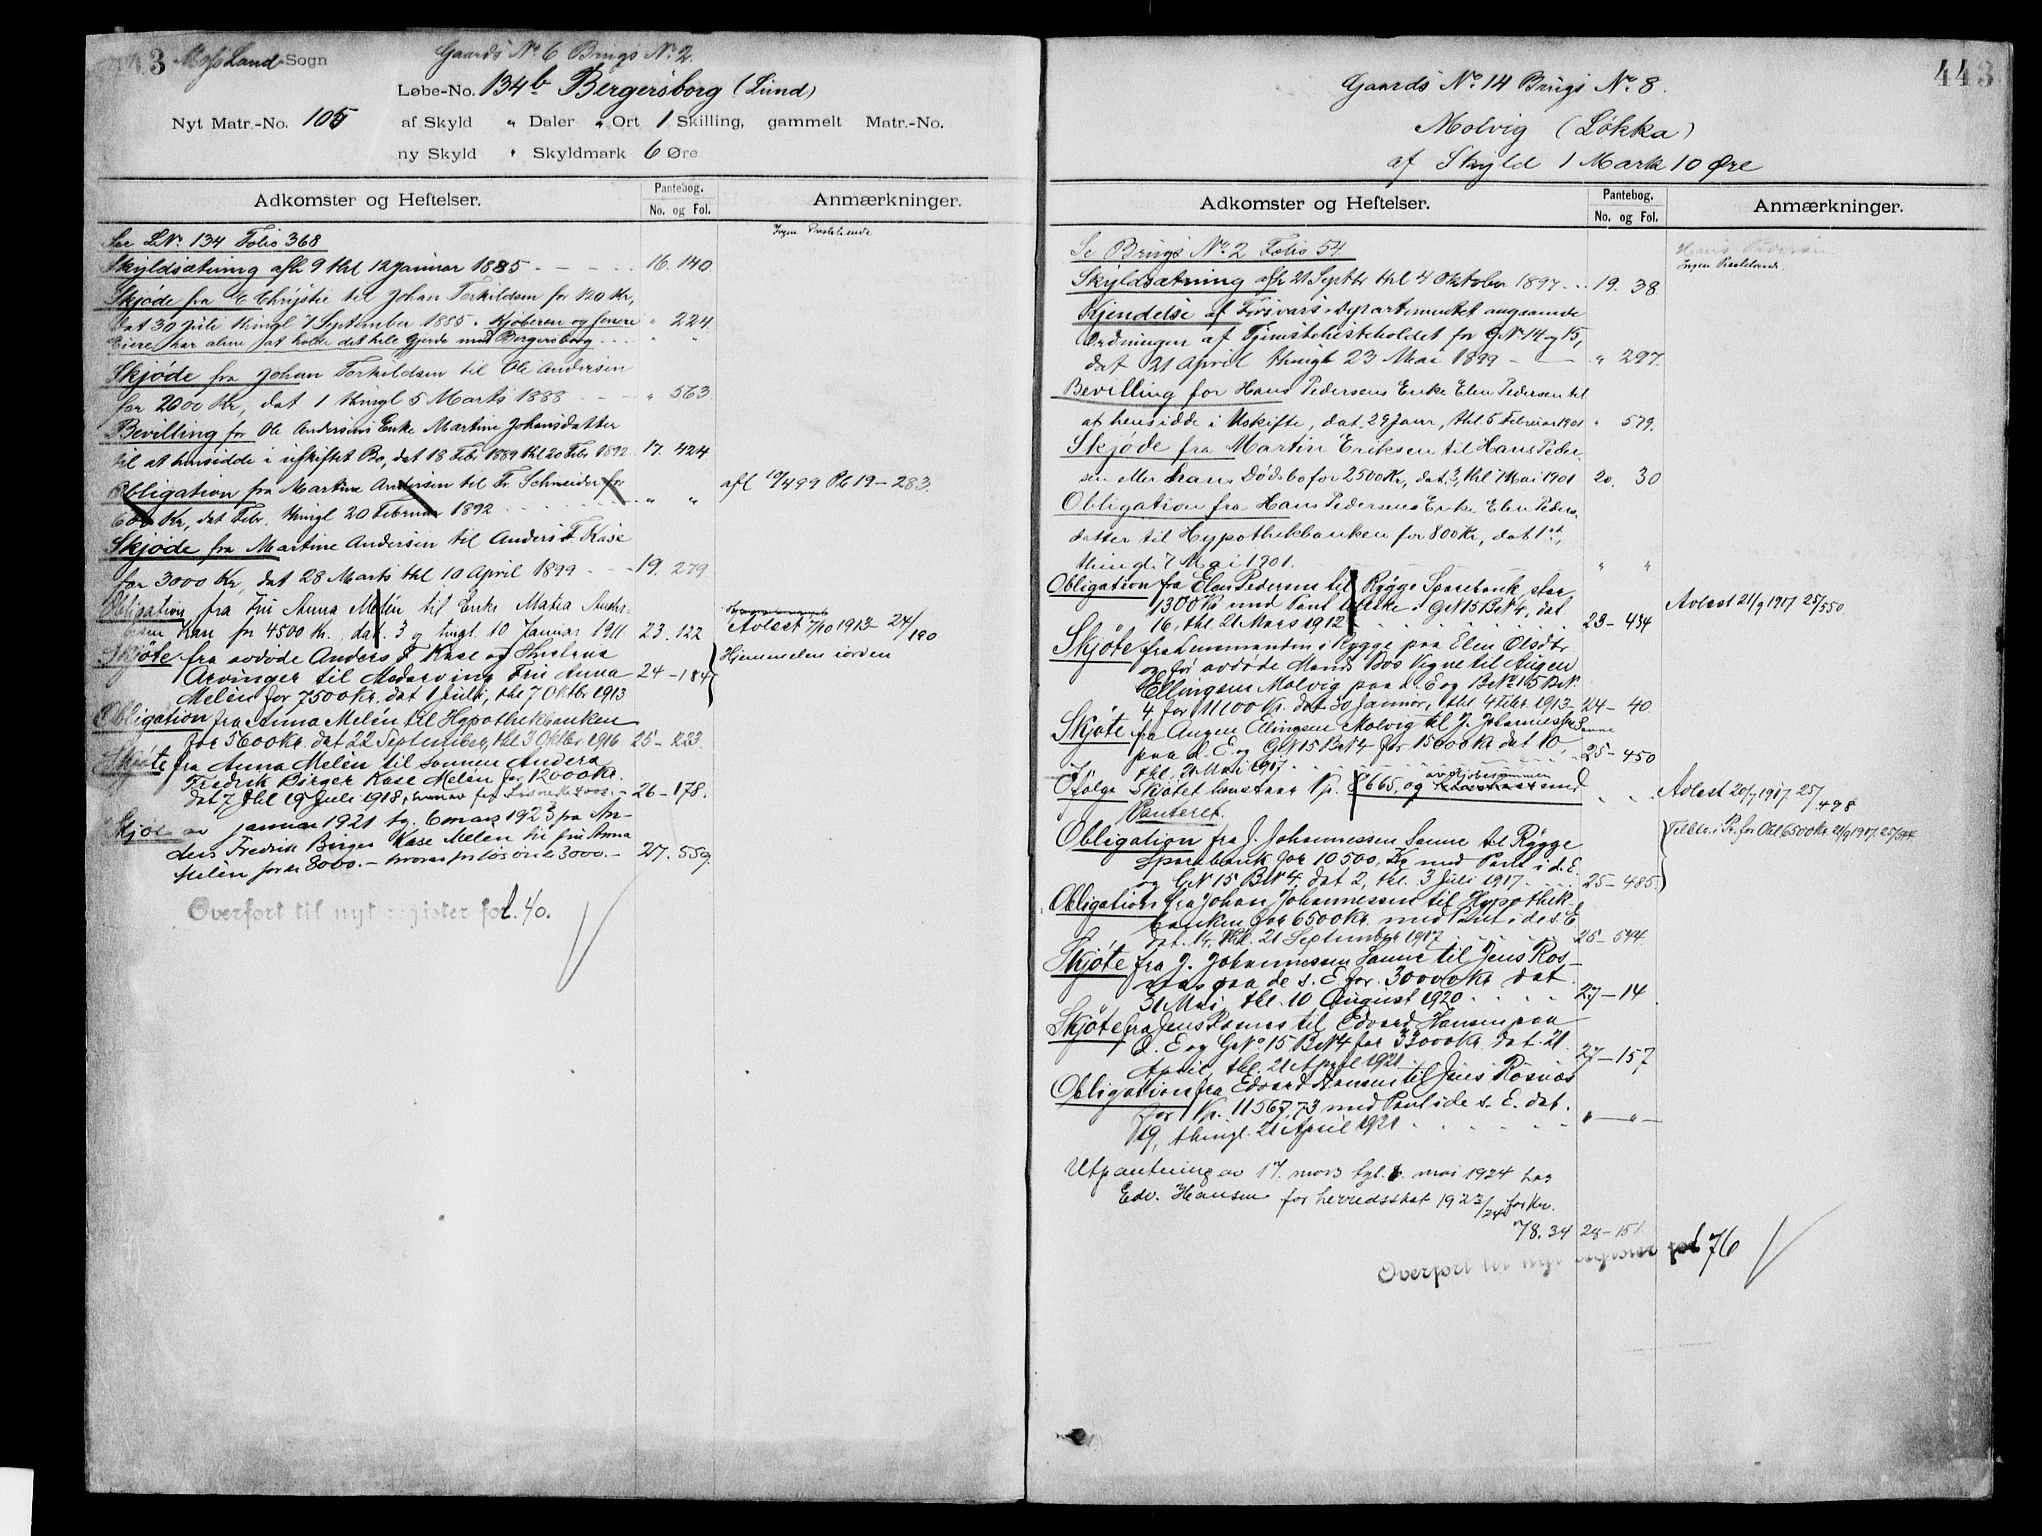 443 Moss Land Sogn
Gaards No 6 Brugs No 2.
Løbe-No. 134b Bergersborg (Lund)
Nyt Matr.-No. 105 af Skyld " Daler " Ort 1 Skilling, gammelt Matr.-No.
ny Skyld " Skyldmark 6 Øre
Adkomster og Heftelser. Pantebog. No. og Fol. Anmærkninger.
Ingen Pristilsende
See LNo. 134 Folio 368
Skyldsætning afh 9 thl 12 Januar 1885 16. 140
Skjøde fra C Christie til Johan Torkildsen for 120 Kr,
dat 30 Juli thingl 7 September 1885. Kjøberen og senere " 224
Eiere har alene at holde det hele Gjerde mod Bergersborg " "
Skjøde fra Johan Torkildsen til Ole Andersen
for 2000 Kr, dat 1 thingl 5 Marts 1888 " 563
Bevilling for Ole Andersens Enke Martine Johansdatter
til at hensidde i uskiftet Bo, dat 18 Febr 1889 thl 20 Febr 1892 17. 424
Obligation fra Martine Andersen til Fr Schneider for
600 Kr, dat Febr. thingl 20 Februar 1892 " " afl 10/4 99 Pb 19 - 283.
Skjøde fra Martine Andersen til Anders F. Kase
for 3000 Kr, dat 28 Marts thl 10 April 1899 19. 279
Obligation fra Fru Anna Melén til Enke Matea Andr-
esen Kase for 4500 Kr. dat. 3 og tingl. 10 Januar 1911 23. 122 Avlæst 7/10 1913 - 24/190
Skjøte fra avdøde Anders F Kase og Hustrus
Arvinger til Medarving Fru Anna 24 - 184 Hjemmelen iorden
Melén for 7500 Kr. dat 1 Juli, thl 7 Oktbr 1913
Obligation fra Anna Melén til Hypothekbanken
for 5600 Kr. dat 22 September, thl 3 Oktbr 1916 25 - 223.
Skjøte fra Anna Melén til sønnen Anders
Fredrik Birger Kase Melén for 12000 Kr.
dat 7 thl 19 Juli 1918, hvorav for Løsøre Kr 2000. - 26 - 178.
Skjøte av januar 1921 tg. 6 mars 1923 fra An-
ders Fredrik Birger Kase Melén til fru Anna
Melén for kr 8000.- hvorav for løsøre kr 3000.- 27. 559.
Overført til nyt register fol. 40.
443
Gaards No 14 Brugs No 8.
Molvig (Løkka)
af Skyld 1 Mark 10 Øre
Adkomster og Heftelser. Pantebog. No. og Fol. Anmærkninger.
Hans Pedersen
Se Brugs No 2 Folio 54
Skyldsætning afh 21 Septbr thl 4 Oktober 1897 19. 38
Kjendelse af Forsvars-departementet angaaende
Ordningen af Tjenestehesteholdet for GNo 14 og 15,
dat 21 April thingl 23 Mai 1899 " 297.
Bevilling for Hans Pedersens Enke Elen Pedersen til
at hensidde i Uskifte, dat 29 Janr, thl 5 Februar 1901 " 579.
Skjøde fra Martin Eriksen til Hans Peder-
sen eller hans Dødsbo for 2500 Kr, dat 3, thl 7 Mai 1901 20. 30
Obligation fra Hans Pedersens Enke Elen Peders-
datter til Hypothekbanken for 800 Kr, dat 1st,
thingl. 7 Mai 1901. " "
Obligation fra Elen Pedersen til Rygge Sparebank, stor
1300 Kr med Pant i GN 15 BN 4, dat
16, thl. 21 Mars 1912 23 - 434 Avlæst 21/9 1917 25/550.
Skjøte fra Lensmanden i Rygge paa Elen Olsdtr
og for avdøde Mands Bos Vegne til Augen
Ellingsen Molvig paa d. E og GNo 15 BNo
4 for 11100 Kr. dat 30 Januar, thl 4 Febr. 1913 24 - 40
Skjøte fra Augen Ellingsen Molvig til J. Johannessen Sanne
paa d. E. og GN 15 BN 4 for 15600 Kr dat 10, 25 - 450
thl. 21 Mai 1917
Ifølge Skjøtet henstaar Kr. 8665, og av Kjøbesummen med
Panteret. " " Avlæst 20/7 1917. 25/498
Obligation fra J. Johannessen Sanne til Rygge
Sparebank for 10500, Kr med Pant i d. E.
og GN 15 BN 4, dat 2, thl. 3 Juli 1917 25 - 485.
Obligation fra Johan Johannessen til Hypothek-
banken for 6500 Kr med Pant i de s. E
dat. 14, thl. 21 September 1917 25 - 544
Skjøte fra J. Johannessen Sanne til Jens Ros-
næs paa de s. E. for 30000 Kr dat
31 Mai, thl. 10 August 1920 27 - 14
Skjøte fra Jens Rosnæs til Edvard Hansen paa
d. E og GNo. 15 BN 4 for 33000 Kr. dat. 21
April, thl. 21 April 1921 27 - 157
Obligation fra Edvard Hansen til Jens Rosnæs
for Kr. 11567,73 med Pant i de s. E. dat.
19, thingl. 21 April 1921 " - " -
Utpantning av 17. mars tgl. 6. mai 1924 hos
Edv. Hansen for herredsskat 1923/24 for kr.
78.34 28 - 151
Overført til nyt register fol 76